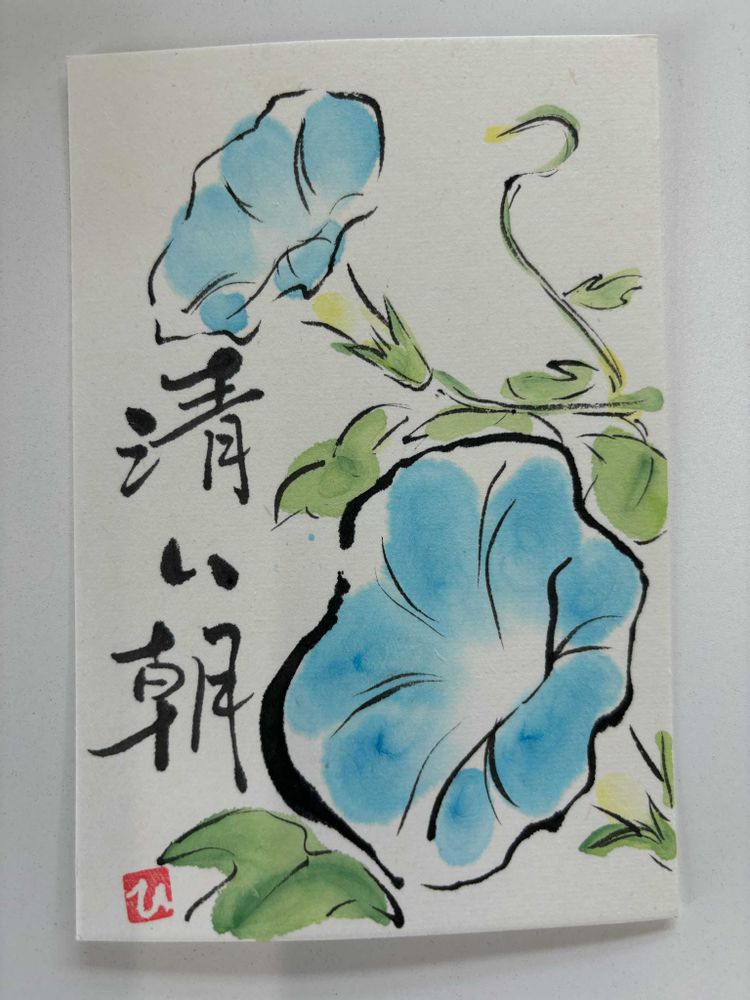 清い朝
ひ